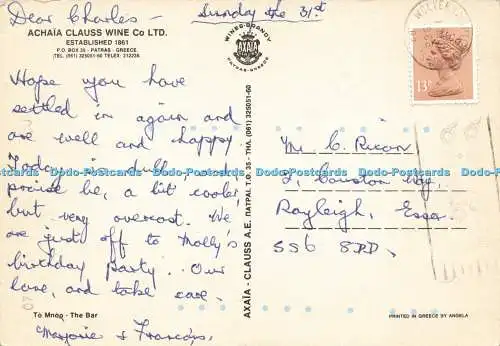 Dear Charles - Sunday the 31st
ACHAÏA CLAUSS WINE Co LTD.
ESTABLISHED 1861
P.O. BOX 35 - PATRAS - GREECE
TEL. (061) 325051-60 TELEX: 312336
Hope you have
settled in again and
are well and happy.
Today is dull, and
praise be, a bit cooler
but very overcast. We
are just off to Molly's
birthday party. Our
love, and take care.
Marjorie & Francis.
Το Μπαρ - The Bar
WINES-BRANDY
AXAÏA
PATRAS-GREECE
AXAÏA - CLAUSS A.E. ΠΑΤΡΑΙ Τ.Θ. 35 - ΤΗΛ. (061) 325051-60
WOLVER
13P
Mr C. Rixon
2, Couston Way,
Rayleigh, Essex.
SS6 8RD.
PRINTED IN GREECE BY ANGELA
Dodo-Postcards Dodo-Postcards Dodo-Postcards Dodo-Postcards